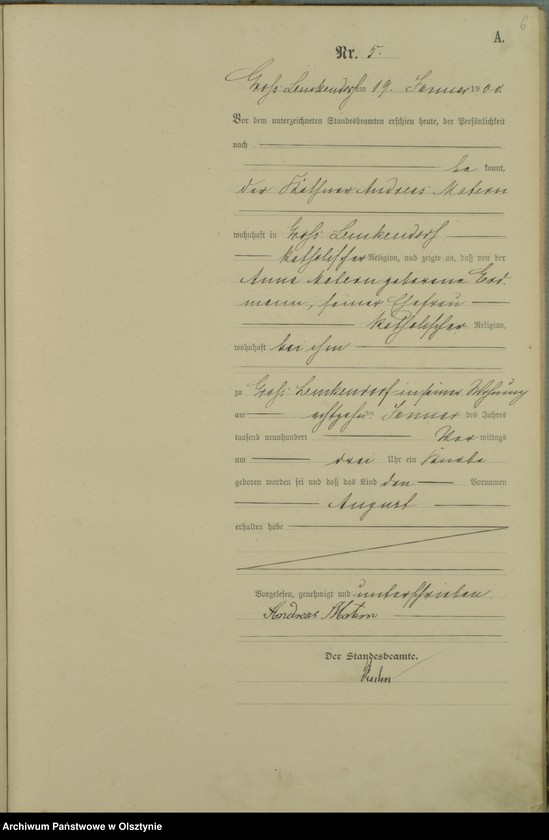 6
A.
Nr. 5.
Gross Lemkendorf am 19. Januar 1900
Vor dem unterzeichneten Standesbeamten erschien heute, der Persönlichkeit
nach
be kannt,
der Käthner Andreas Matern
wohnhaft in Gross Lemkendorf
katholischer Religion, und zeigte an, daß von der
Anna Matern geborene Erd-
mann, seiner Ehefrau
katholischer Religion,
wohnhaft bei ihm
zu Gross Lemkendorf in seiner Wohnung
am achtzehnten Januar des Jahres
tausend neunhundert Vor mittags
um drei Uhr ein Knabe
geboren worden sei und daß das Kind den Vornamen
August
erhalten habe
Vorgelesen, genehmigt und unterschrieben.
Andreas Matern
Der Standesbeamte.
Archiwum Państwowe w Olsztynie